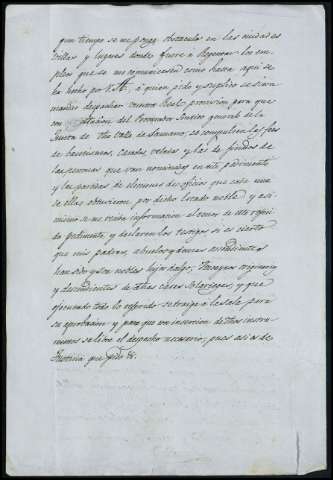 gun tiempo se me ponga obstaculo en las ciudades
villas y lugares donde fuere á Regentar los em-
pleos que se me comunicaren como hasta aqui se
ha hecho por V.A, á quien pido y suplico se sirva
mandar despachar vuestra Real provision para que
con citacion del Procurador Sindico general de la
Junta de dha Valle de Samano, se compulsen las fees
de bautismos, casados velados y las de finados de
las personas que van nominadas en este pedimento
y las partidas de elecciones de oficios que cada una
de ellas obtuvieron por dicho Estado noble y asi-
mismo se me reciva informacion al tenor de este referi-
do pedimento, y declaren los testigos si es cierto
que mis padres, abuelos y demas ascendientes
han sido y son nobles hijos dalgo, 
y descendientes de dhas casas Solariegas, y que
efectuado todo lo referido se traiga á la sala para
su aprobacion y para que con insercion de dhos instru-
mentos se libre el despacho necesario, pues asi es de
Justicia que pido &.